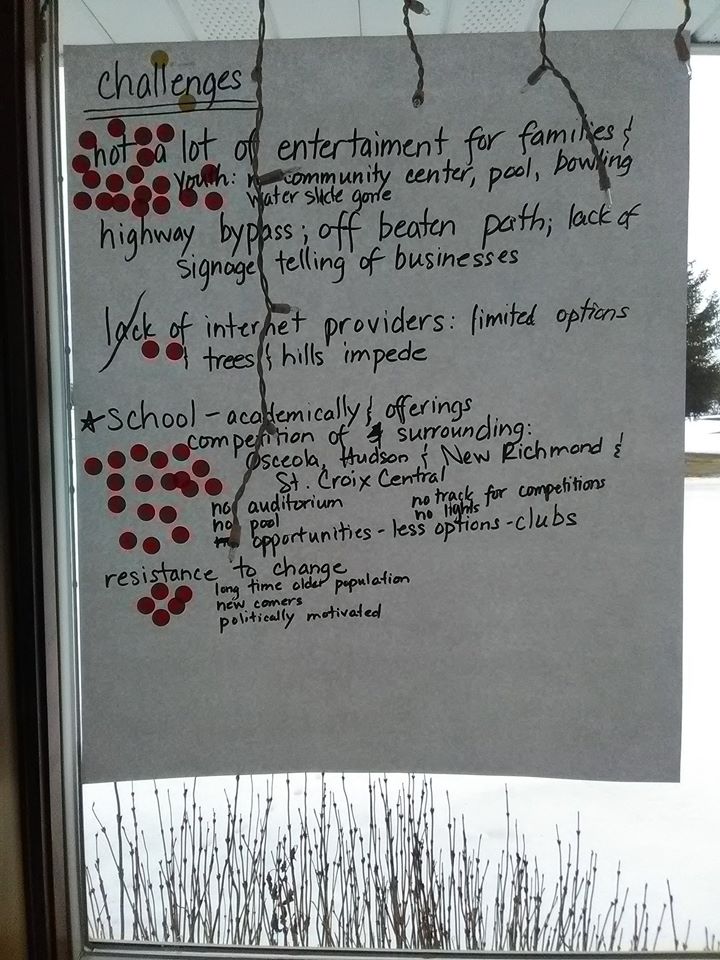 challenges
not a lot of entertaiment for families &
youth: community center, pool, bowling
water slide gone
highway bypass; off beaten path; lack of
signage telling of businesses
lack of internet providers: limited options
& trees & hills impede
school - academically & offerings
competition of 4 surrounding:
Osceola, Hudson & New Richmond &
St. Croix Central
no auditorium
no track for competitions
no pool
no lights
opportunities - less options - clubs
resistance to change
long time older population
new comers
politically motivated